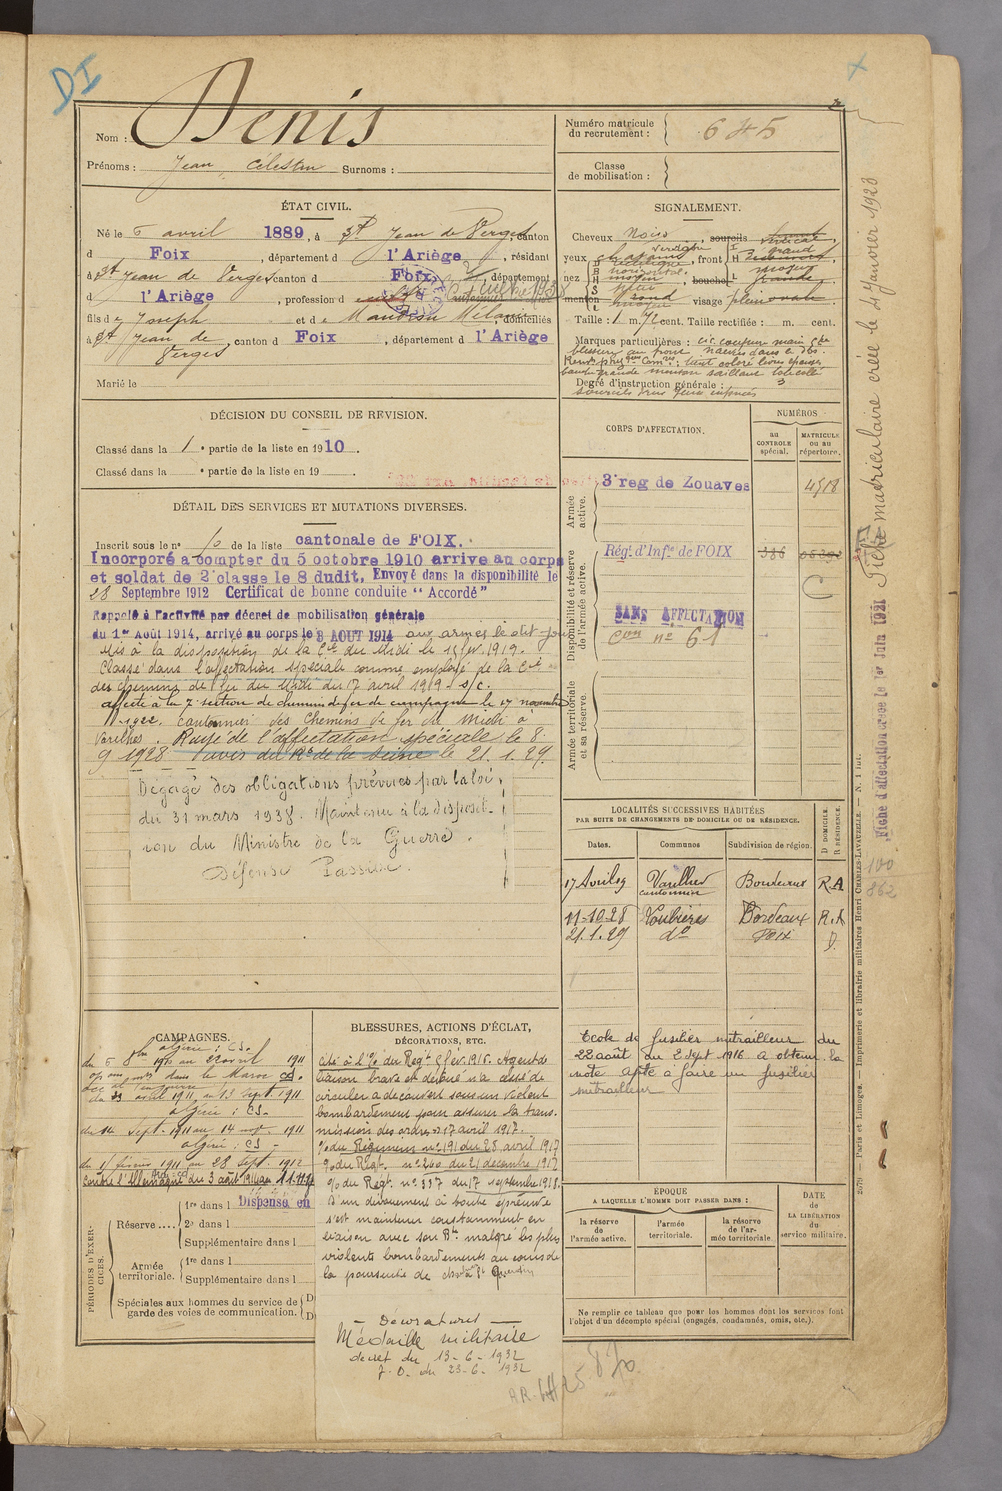 DI
Nom : Denis
Prénoms : Jean Célestin Surnoms :
Numéro matricule du recrutement : 645
Classe de mobilisation :
ÉTAT CIVIL.
Né le 6 avril 1889, à St Jean de Verges, canton
d Foix, département d l'Ariège, résidant
à St Jean de Verges, canton d Foix, département
d l'Ariège, profession d cultivateur
fils de Joseph et de Mélanie, domiciliés
à St Jean de Verges, canton d Foix, département d l'Ariège
Marié le
SIGNALEMENT.
Cheveux Noirs, sourcils
yeux, front
nez, bouche
menton rond visage plein ovale
Taille : 1 m. 71 cent. Taille rectifiée : m. cent.
Marques particulières : cic. coupure main
blessure au front
menton saillant
Degré d'instruction générale : 3
DÉCISION DU CONSEIL DE RÉVISION.
Classé dans la 1 e partie de la liste en 1910.
Classé dans la e partie de la liste en 19
DÉTAIL DES SERVICES ET MUTATIONS DIVERSES.
Inscrit sous le no 10 de la liste cantonale de FOIX.
Incorporé a compter du 5 octobre 1910 arrive au corps
et soldat de 2e classe le 8 dudit, Envoyé dans la disponibilité le
28 Septembre 1912 Certificat de bonne conduite "Accordé"
Rappelé à l'activité par décret de mobilisation générale
du 1er Août 1914, arrivé au corps le 3 AOUT 1914 aux armées le dit jour
Mis à la disposition de la Cie du Midi le 15 fév. 1919.
Classé dans l'affectation spéciale comme employé de la Cie
des chemins de fer du Midi du 17 avril 1919 s/c.
affecté à la 7e section de chemins de fer de campagne le 17 novembre
1922. Cantonnier des Chemins de fer du Midi à
Varilhes. Rayé de l'affectation spéciale le 8.
9 1928. avis du Rt de la Seine le 21.1.29.
Dégagé des obligations prévues par la loi
du 31 mars 1938. Maintenu à la disposit-
ion du Ministre de la Guerre.
Défense Passive.
CORPS D'AFFECTATION.
NUMÉROS
au CONTROLE spécial.
MATRICULE ou au répertoire.
Armée active.
3e reg de Zouaves 4518
Disponibilité et réserve de l'armée active.
Régt d'Infie de FOIX 386
C
SANS AFFECTATION
Con no 61
Armée territoriale et sa réserve.
LOCALITÉS SUCCESSIVES HABITÉES
PAR SUITE DE CHANGEMENTS DE DOMICILE OU DE RÉSIDENCE.
Dates. Communes Subdivision de région. D DOMICILE. R RÉSIDENCE.
17 Avril 19 Varilhes cantonnier Bordeaux R.A
11-10-28 Bordeaux R.A
21.1.29 do Foix D.
Ecole de fusilier mitrailleur du
22 août au 2 sept 1916 a obtenu la
note apte à faire un fusilier
mitrailleur
CAMPAGNES.
Algérie : CS.
du 5 8bre 1910 au 22 avril 1911
dans le Maroc
du 23 avril 1911 au 13 sept. 1911
Algérie : CS.
du 14 sept. 1911 au 14 1911
Algérie : CS
du 1er février 1911 au 28 Sept. 1912
Contre l'Allemagne du 3 août 1914 au
BLESSURES, ACTIONS D'ÉCLAT,
DÉCORATIONS, ETC.
Cité à l'O/ du Régt 6 fév. 1916. Agent de
liaison brave et dévoué n'a cessé de
circuler à découvert sous un violent
bombardement pour assurer la trans-
mission des ordres 17 avril 1917.
O/ du Régiment no 191 du 28 avril 1917
O/ du Régt. no 240 du 21 décembre 1917
O/ du Régt. no 337 du 17 septembre 1918.
D'un dévouement à toute épreuve
s'est maintenu constamment en
liaison avec son Bn. malgré les plus
violents bombardements au cours de
la poursuite de St Quentin
— Décorations —
Médaille militaire
décret du 13-6-1932
J.O. du 23-6-1932
PÉRIODES D'EXERCICES.
Réserve.... 1re dans l Dispensé en
2e dans l
Supplémentaire dans l
Armée territoriale. 1re dans l
Supplémentaire dans l
Spéciales aux hommes du service de garde des voies de communication. D
D
ÉPOQUE
A LAQUELLE L'HOMME DOIT PASSER DANS :
la réserve de l'armée active. l'armée territoriale. la réserve de l'armée territoriale.
DATE DE LA LIBÉRATION du service militaire.
Ne remplir ce tableau que pour les hommes dont les services font
l'objet d'un décompte spécial (engagés, condamnés, omis, etc.).
Fiche matriculaire créée le 24 Janvier 1923
Fiche d'affectation créée le 1er Juin 1921
100
862
2079 — Paris et Limoges. — Imprimerie et librairie militaires Henri CHARLES-LAVAUZELLE. — N. 1 int.